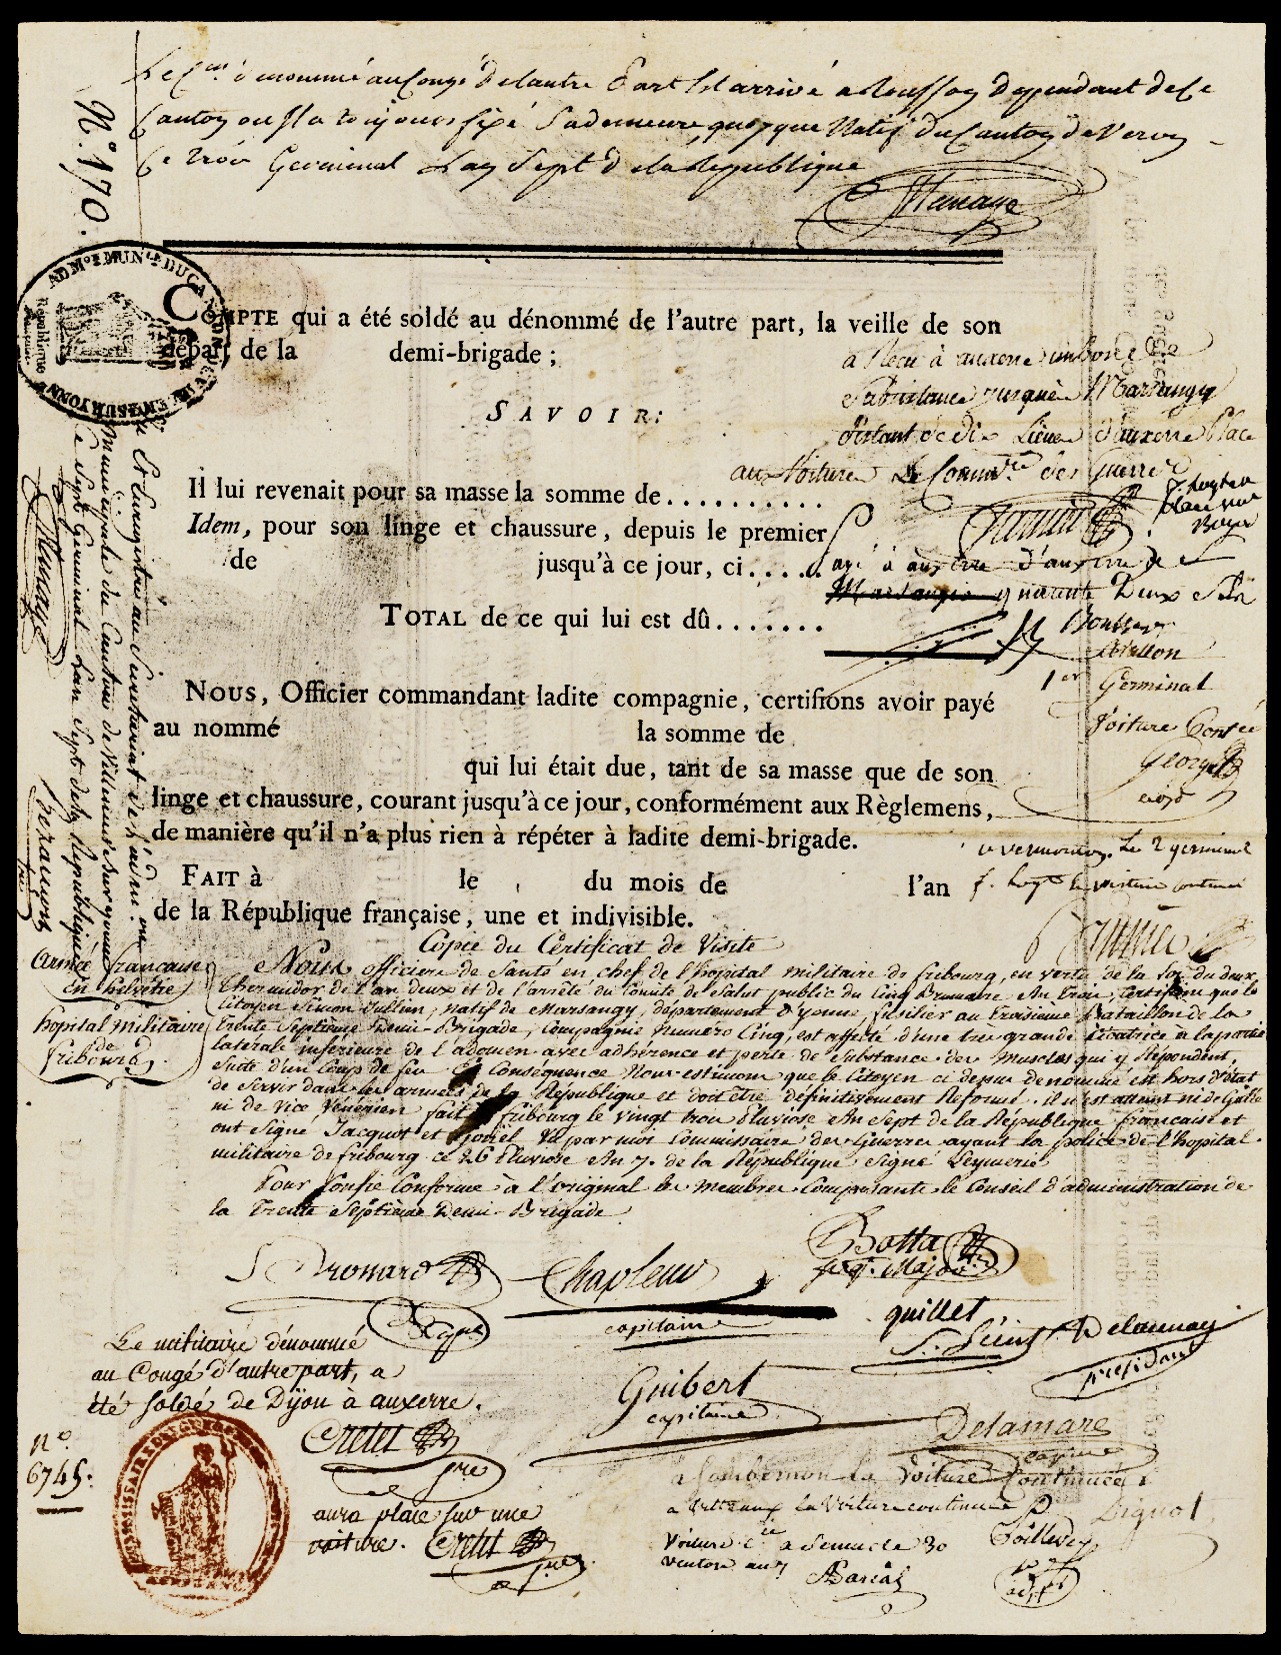 Le Cen dénommé au Congé de lautre Part Est arrivé a Roussoy dependant de Ce
Canton ou Il a toujours fixé Sa demeure quoyque Natif du Canton de Veron
Ce trois Germinal Lan Sept de la Republique
Manaye
N.° 170.
ADM.on MUN.le DU CANTON DE VILLEN.ve SUR YONNE
République
COMPTE qui a été soldé au dénommé de l'autre part, la veille de son
départ de la demi-brigade ;
SAVOIR:
a Reçu à auxerre un bon de
subsistance jusqu'à Marsangy
distant de dix Lieues d'auxerre Place
aux Voitures Le Commre des Guerres
Il lui revenait pour sa masse la somme de..........
Idem, pour son linge et chaussure, depuis le premier
de jusqu'à ce jour, ci.....
payé à auxerre d'auxerre à
Marsangis quarante Deux sols
TOTAL de ce qui lui est dû.......
1er Germinal
Voiture
George
NOUS, Officier commandant ladite compagnie, certifions avoir payé
au nommé la somme de
qui lui était due, tant de sa masse que de son
linge et chaussure, courant jusqu'à ce jour, conformément aux Règlemens,
de manière qu'il n'a plus rien à répéter à ladite demi-brigade.
a vermanton. Le 2 germinal
la voiture continué
FAIT à le du mois de l'an
de la République française, une et indivisible.
Vu Et Enregistré au Secretariat de l'adm.on
Municipale du Canton de Villeneuve sur yonne
Ce Sept Germinal Lan Sept de la Republique
Manaye
Copie du Certificat de Visite
Armée française
en helvétie
hopital militaire
de
fribourg.
Nous officiers de Santé en chef de l'hopital militaire de fribourg, en vertu de la Loi du deux
thermidor de l'an deux et de l'arrêté du Comité de Salut public du Cinq Brumaire An Trois, Certifions que le
Citoyen Simon Jullien, natif de Marsangy, département d'yonne, fusilier au troisieme Bataillon de la
Trente Septieme Demi-Brigade, Compagnie Numero Cinq, est affecté d'une très grande Cicatrice à la partie
laterale inferieure de l'adomen avec adhérence et perte de Substance des Muscles qui y Répondent,
Suite d'un Coup de feu En Conséquence Nous estimons que le Citoyen ci dessus dénommé est hors d'état
de Servir dans les armées de la République et doit être définitivement Reformé. il n'est atteint ni de Galle
ni de Vice Vénérien fait à fribourg le vingt trois Pluviose An Sept de la République française et
ont Signé Jacquot et Goriel Vu par moi Commissaire des Guerres ayant la police de l'hopital
militaire de fribourg ce 26 Pluviose An 7. de la République Signé Leymerie
Pour Copie Conforme à l'original les Membres Composants le Conseil d'administration de
la Trente Septieme Demi-Brigade
Drouard
Chapleur
capitaine
Botta
sergt. Major
quillet
Delaunay
président
Le militaire dénommé
au Congé d'autre part, a
été Soldé de Dijon à auxerre.
Guibert
capitaine
Delamare
N.°
6745.
COMMISSAIRE DES GUERRES
Cretet
aura place sur une
voiture. Cretet
a Sombernon la Voiture Continuée
a Vitteaux La Voiture continuée
Voiture c.ée a Semur le 30
Ventose an 7
Barial
Signol